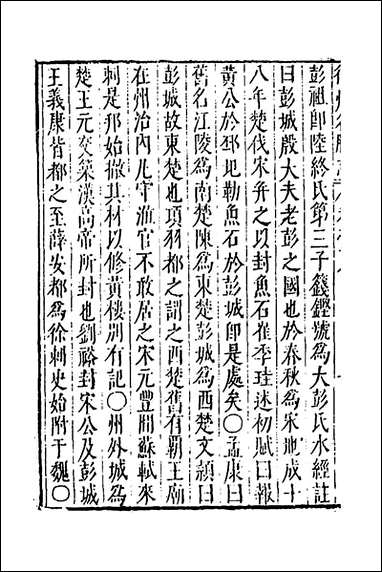 彭祖即陸終氏第三子籛鏗號爲大彭氏水經註
曰彭城殷大夫老彭之國也於春秋爲宋地成十
八年楚伐宋并之以封魚石崔季珪述初賦曰報
黄公於邳圯勒魚石於彭城即是處矣〇孟康曰
舊名江陵爲南楚陳爲東楚彭城爲西楚文頴曰
彭城故東楚也項羽都之謂之西楚舊有覇王廟
在州治内凡守淮官不敢居之宋元豐間蘇軾來
刺是邦始徹其材以修黄樓別有記〇州外城爲
楚王元交築漢高帝所封也劉𥙿封宋公及彭城
王義康皆都之至薛安都爲徐刺史始附于魏〇